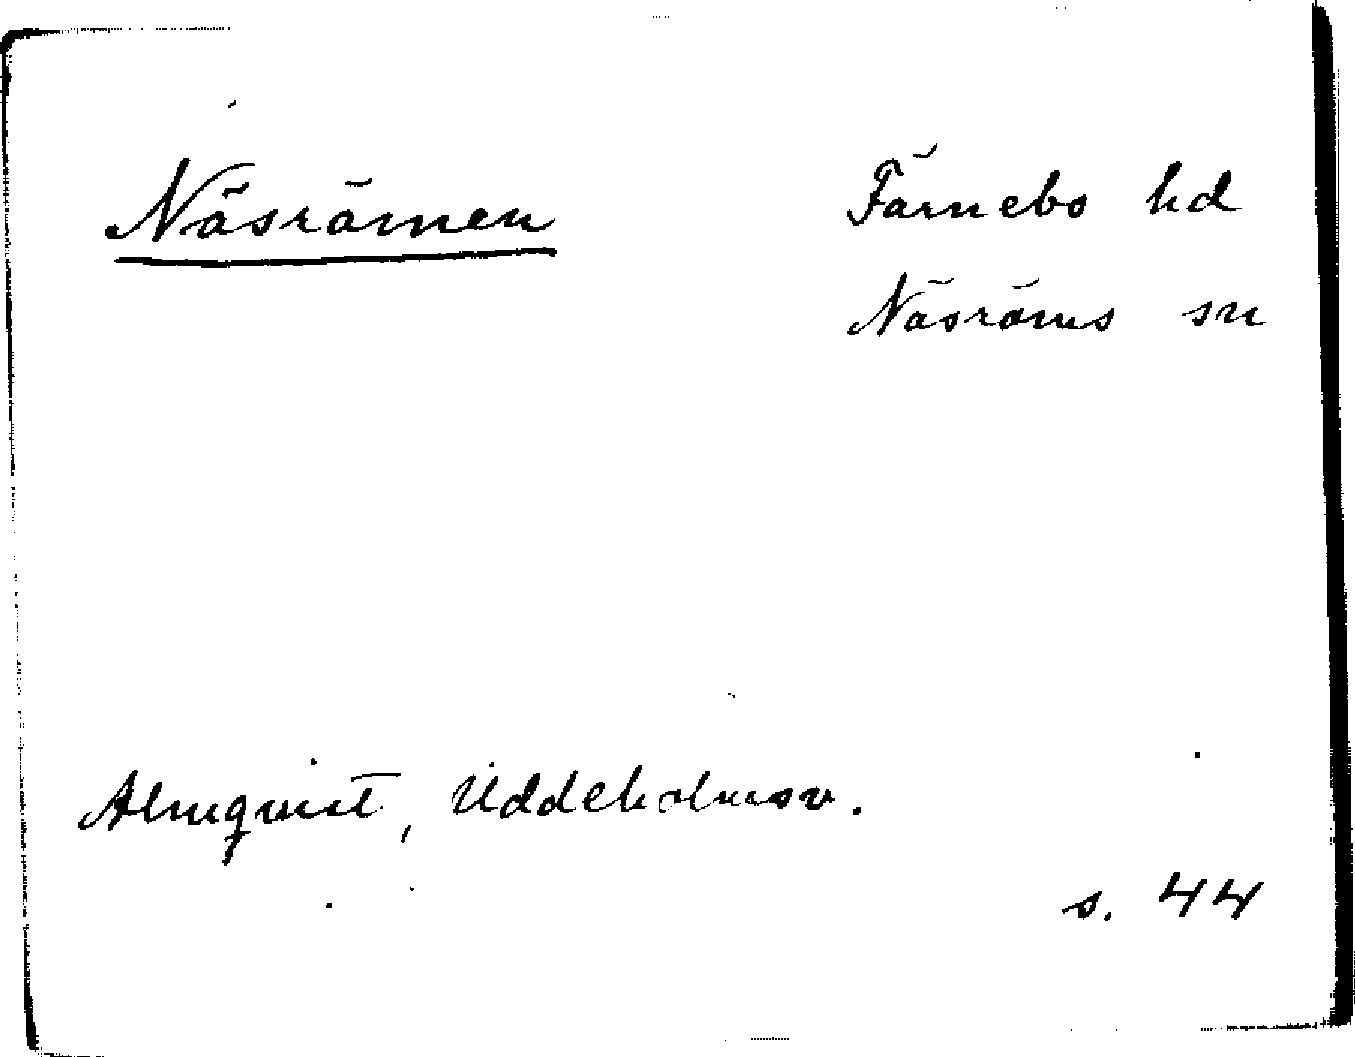 Näsrämen
Färnebo hd
Näsräms sn
Almquist, Uddeholmsv.
s. 44